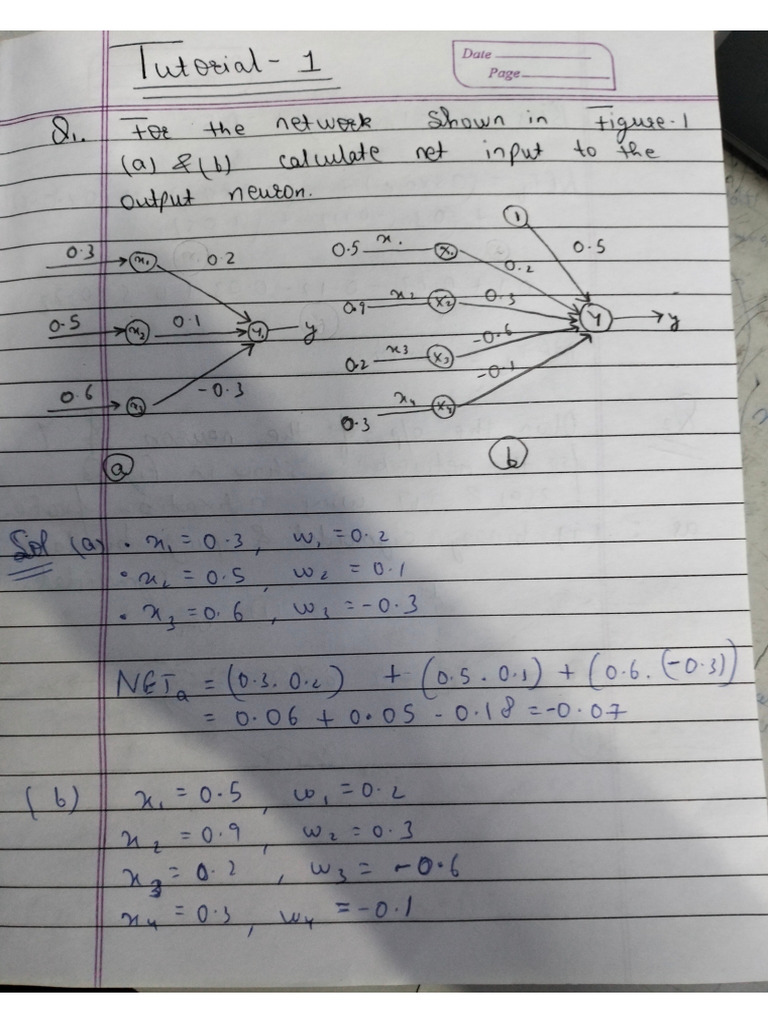 Tutorial - 1
Date
Page
Q1. For the network shown in Figure-1
(a) & (b) calculate net input to the
output neuron.
1
0.3 x1 0.2
0.5 x1 x1 0.2 0.5
0.5 x2 0.1 Y1 y
0.9 x2 x2 0.3 Y y
0.2 x3 x3 -0.6
0.6 x3 -0.3
0.3 x4 -0.1
a b
Sol (a) • x1 = 0.3, w1 = 0.2
• x2 = 0.5, w2 = 0.1
• x3 = 0.6, w3 = -0.3
NETa = (0.3. 0.2) + (0.5 . 0.1) + (0.6. (-0.3))
= 0.06 + 0.05 - 0.18 = -0.07
(b) x1 = 0.5, w1 = 0.2
x2 = 0.9, w2 = 0.3
x3 = 0.2, w3 = -0.6
x4 = 0.3, w4 = -0.1